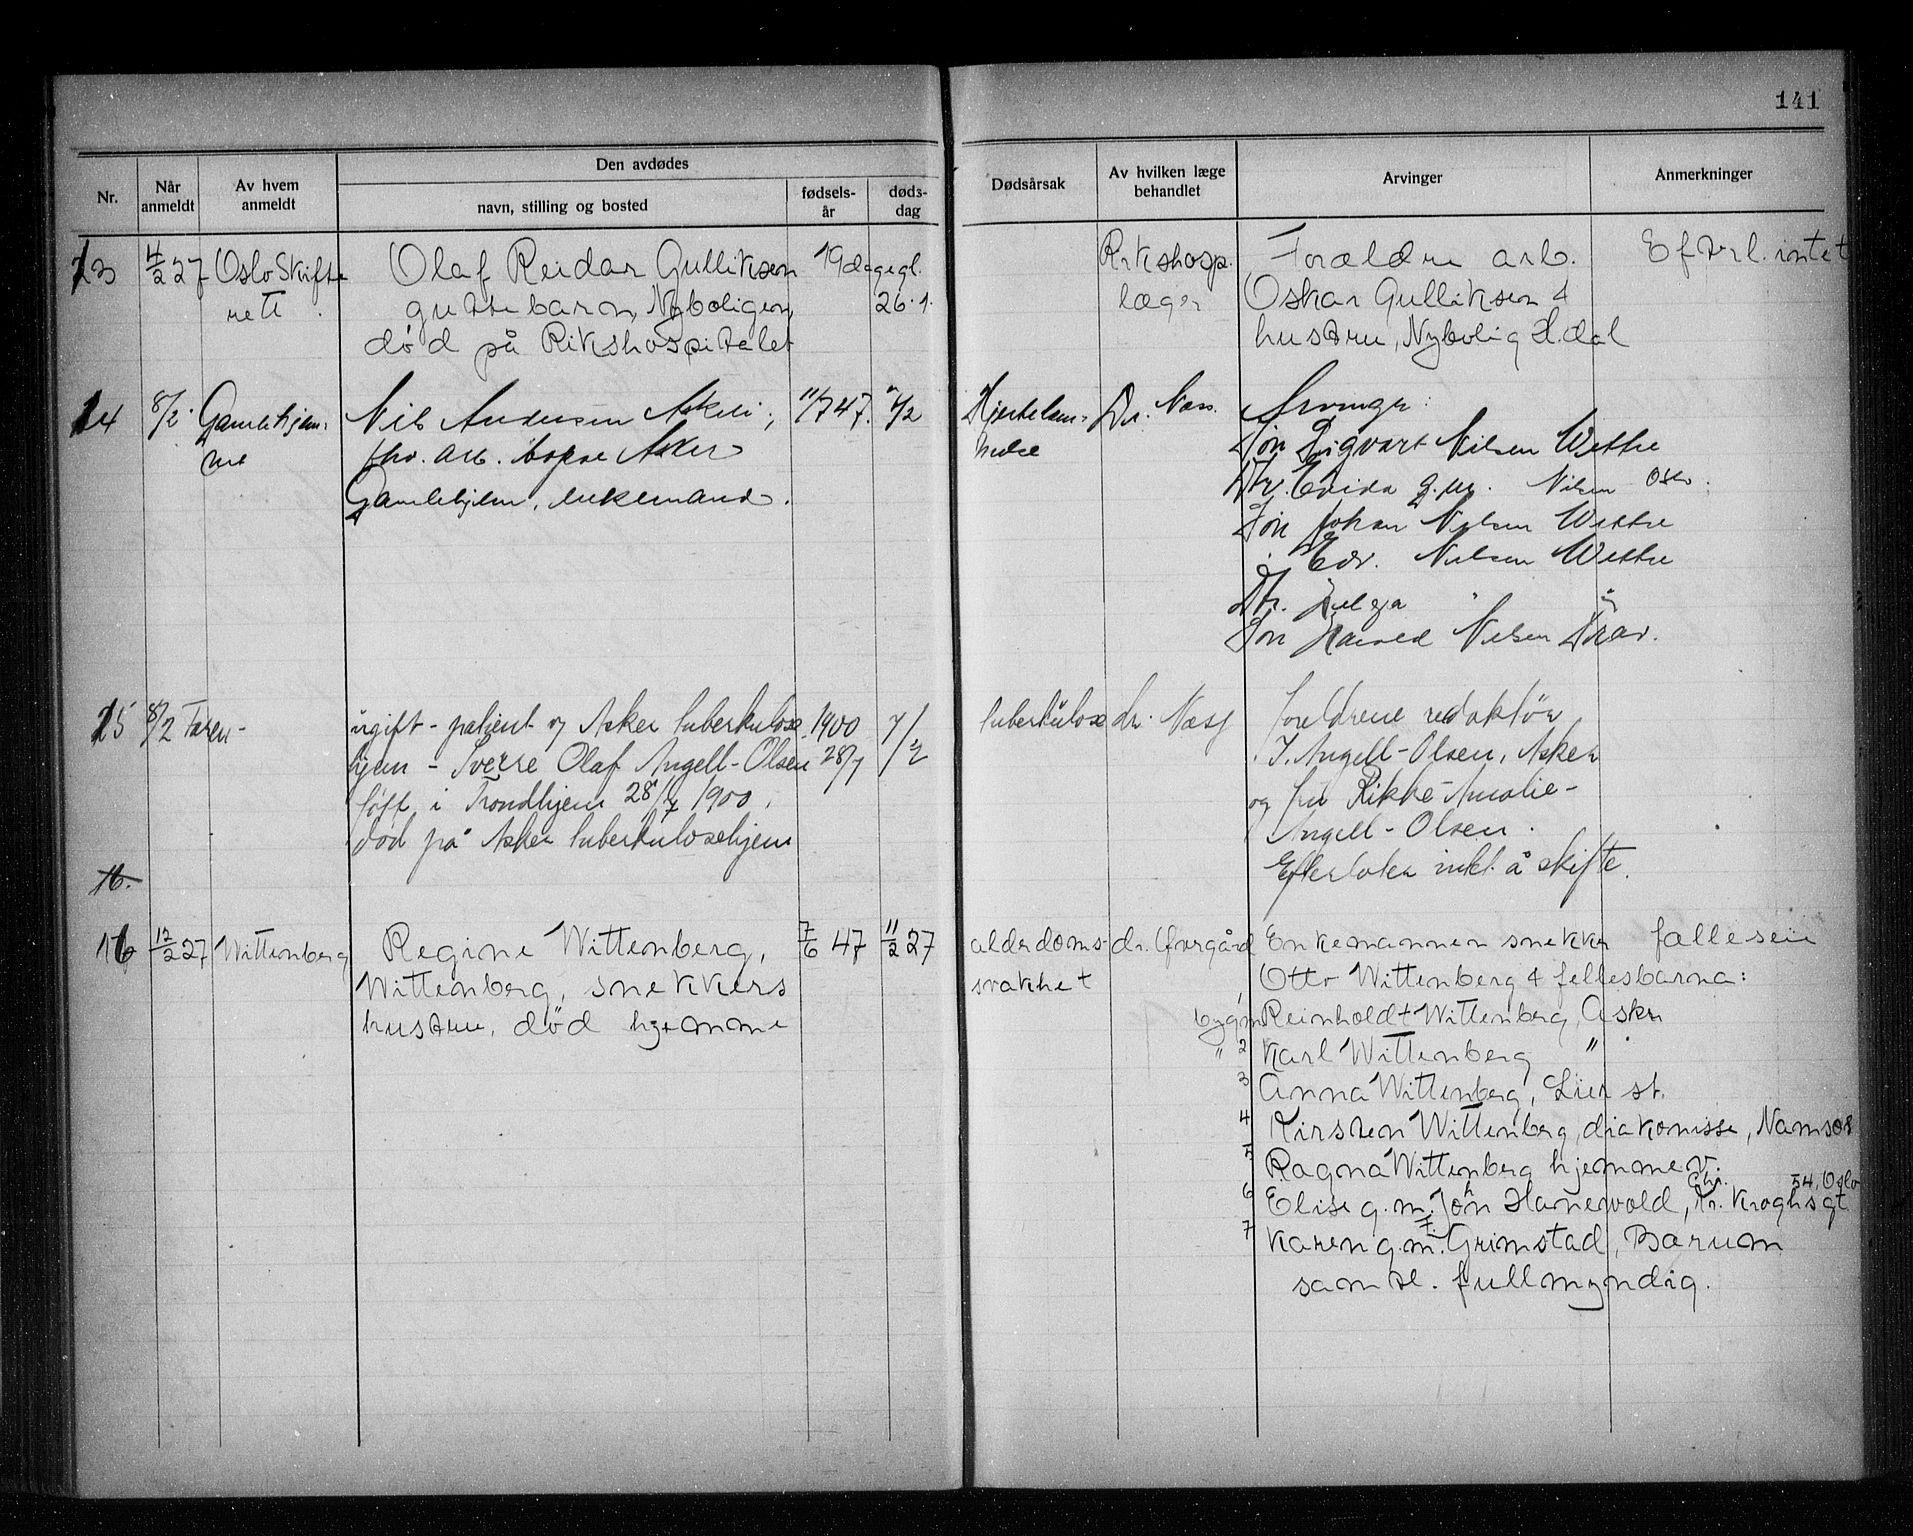 141
Nr.
Når anmeldt
Av hvem anmeldt
Den avdødes
navn, stilling og bosted
fødsels-år
døds-dag
Dødsårsak
Av hvilken læge behandlet
Arvinger
Anmerkninger
13 4/2 27 Oslo Skifte Olaf Reidar Gulliksen 19 dage gl. Rikshosp. Forældre arb. Efterl. intet
rett guttebarn, Nyboligen, 26.1. læger Oskar Gulliksen &
død på Rikshospitalet hustru, Nybolig H.dal
14 8/2 Gamlehjem- Nils Andersen Askeli, 11/7 47. 7/2 Hjertelam- Dr. Næss. Arvinger:
met fhv. arb. Asker melse Søn Sigvart Nilsen Wettre
Gamlehjem, enkemand. Dtr. g.m. Nilsen Oslo
Søn Johan Nilsen Wettre
" Edv. Nilsen Wettre
Dtr. Helga " "
Søn Harald Nilsen
15 8/2 Faren - ugift - patient v Asker tuberkulose 1900 7/2 tuberkulose dr. Næss foreldrene redaktør
hjem - Sverre Olaf Angell-Olsen 28/7 J. Angell-Olsen, Asker
født i Trondhjem 28/7 1900, og fru Rikke Amalie -
død på Asker tuberkulosehjem Angell-Olsen.
Efterlater intet å skifte.
16.
16 12/2 27 Wittenberg Regine Wittenberg, 7/6 47 11/2 27 alderdoms- dr. Overgård Enkemannen snekker felleseie
Wittenberg, snekkers svakhet Otto Wittenberg & fellesbarna:
hustru, død hjemme bygm. 1 Reinholdt Wittenberg, Asker
" 2 Karl Wittenberg "
3 Anna Wittenberg, Lier st.
4 Kirsten Wittenberg, diakonisse, Namsos
5 Ragna Wittenberg hjemmev.
6 Elise g.m. John Hanevold, Chr. Kroghsgt 54, Oslo
7 Karen g.m. F. Grimstad, Bærum
samtl. fullmyndig.